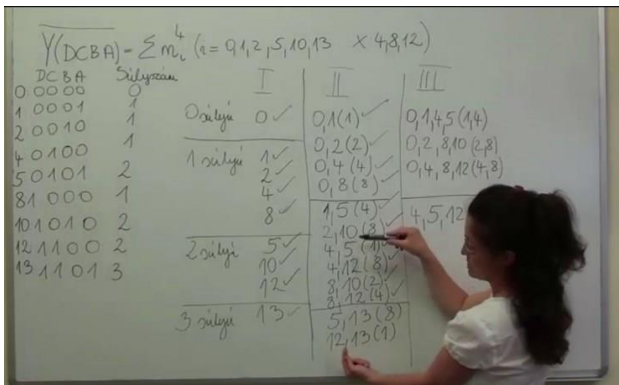 Y(DCBA) = Σ m_i^4 (i = 0,1,2,5,10,13 X 4,8,12)
DCBA Súlyszám
0 0000 0
1 0001 1
2 0010 1
4 0100 1
5 0101 2
8 1000 1
10 1010 2
12 1100 2
13 1101 3
I
0 súlyú 0 ✓
1 súlyú 1 ✓
2 ✓
4 ✓
8 ✓
2 súlyú 5 ✓
10 ✓
12 ✓
3 súlyú 13 ✓
II
0,1(1) ✓
0,2(2) ✓
0,4(4) ✓
0,8(8) ✓
1,5(4) ✓
2,10(8) ✓
4,5(1) ✓
4,12(8)
8,10(2) ✓
8,12(4) ✓
5,13(8)
12,13(1)
III
0,1,4,5(1,4)
0,2,8,10(2,8)
0,4,8,12(4,8)
4,5,12